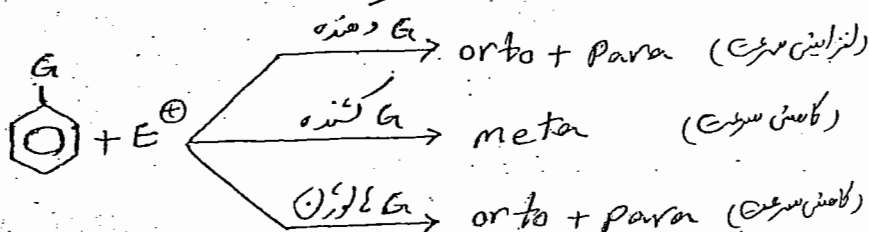 G دهنده orto + Para (افزایش سرعت)
G
+ E⊕ G کشنده meta (کاهش سرعت)
G هالوژن orto + Para (کاهش سرعت)